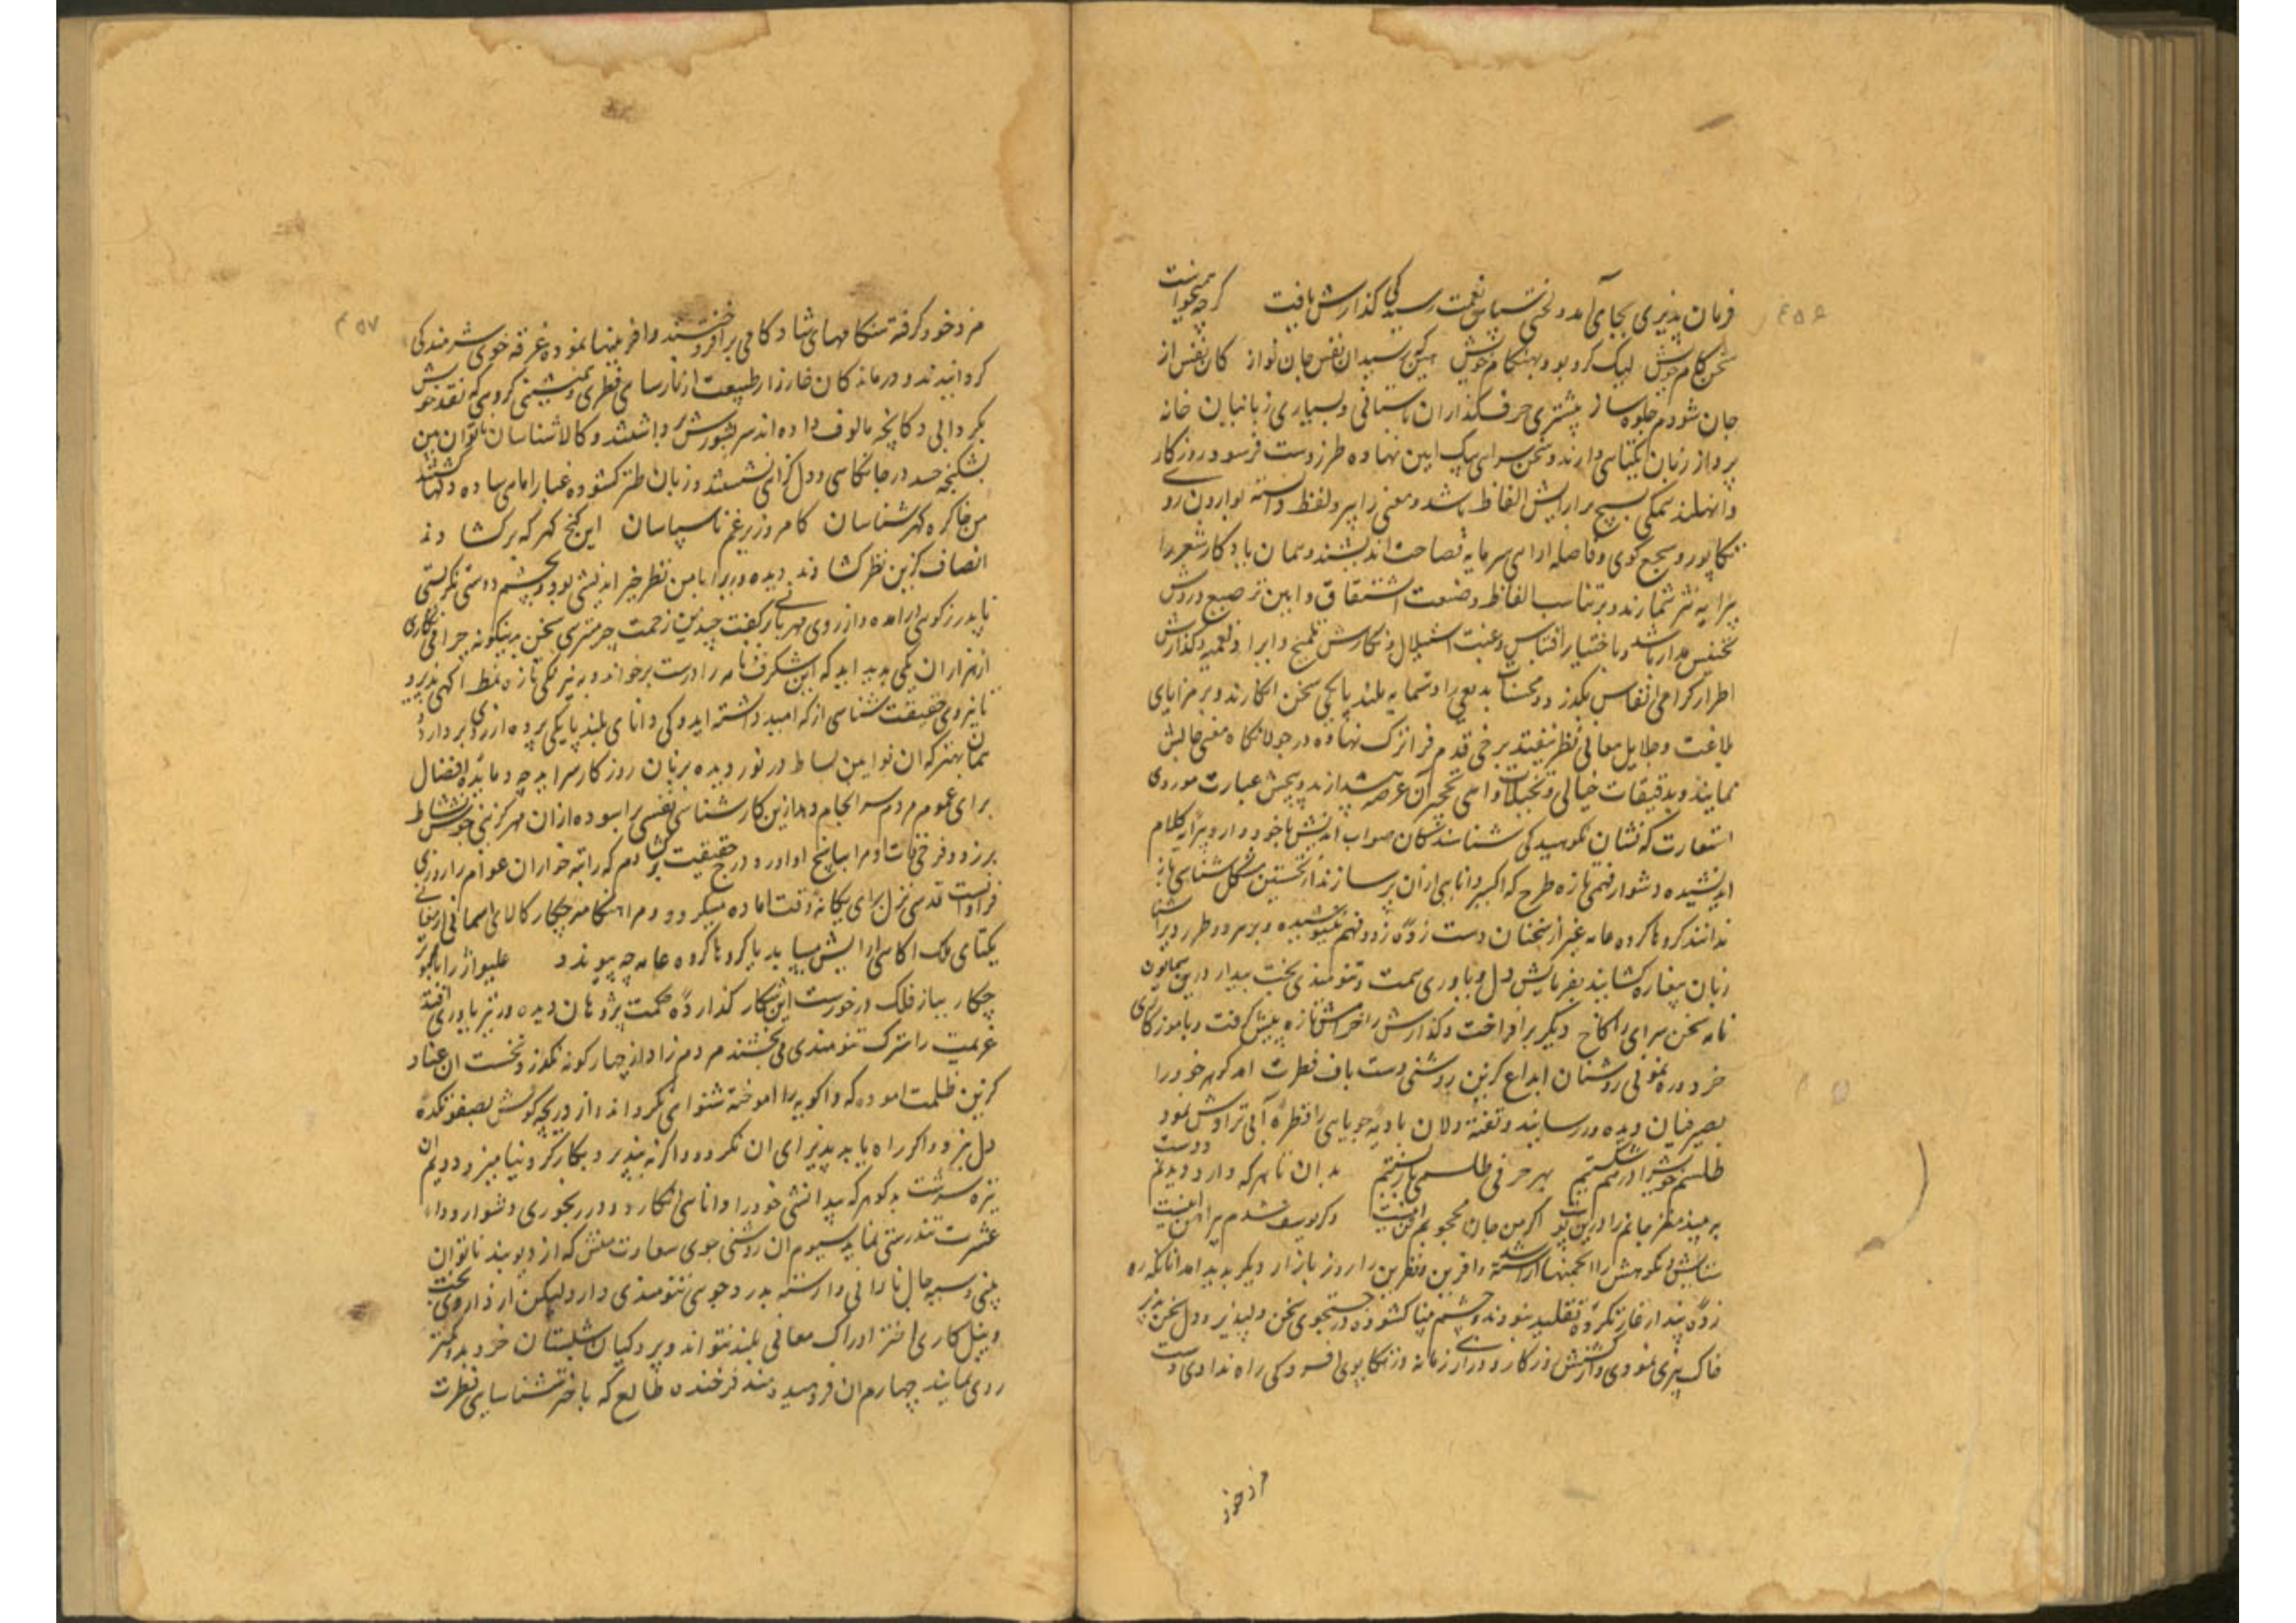 فرمان پذیری بجای آمد و لختی سپاس نعمت رسیدگی گذارش یافت گرچه همیخواست
سخن کام خویش لیک گرو بود بهنگام خویش کان نفس از
جان شود م جلوه ساز پیشتری حرف گذاران باستانی و بسیاری زبانیان خانه
پرداز زبان یکتایی دارند و سخن سرای یک آیین نهاده طرز دست فرسود روزگار
وا نهلند همگی بسیچ بر آرایش الفاظ باشد و معنی را پیرو لفظ دانسته اوارون رو
تکاپو رود سجع گوی و فاصله آرای سرمایه فصاحت اندیشند و سان یادکار شعر را
پیرایه نثر شمارند و بر تناسب الفاظ و صنعت اشتقاق و آیین ترصیع و روش
تجنیس مدار باشد و باختیار اقتباس و نگارش تلمیح و ایراد تعمیه و گذارش
اطراز گرامی انفاس بگذرد و محسنات بدیعی را دستمایه بلند پایگی سخن انگارند و بر مزایای
بلاغت و جلایل معانی نظر نیفتد برخی قدم فراترک نهاده در جولانگاه معنی چالش
نمایند و بدقیقات خیالی و تخیلات واهی نخچیر آن عرصه عبارت موردی
استعارت که نشان نکوهیدگی شناسندگان صواب اندیش با خود دارد پیرایه کلام
اندیشیده دشوار فهمی تازه طرح که اکسیر دانایی از آن بر سازند از نخستین مشکل شناسی باز
ندانند گروها گروه عامه غیر از سخنان دست زده زود فهم ننیوشیده و بر هر دو طرز دیر آشنا
زبان بیغاره گشایند بفرمایش دل و یاوری همت و تنومندی بخت بیدار درین همایون
نامه سخن سرای را کاخ دیگر بر افراخت و گذارش را خرامش تازه پیش گرفت و بآموزگاری
خرد و رهنمونی روشنان ابداع گزین روشنی دست باف فطرت آمد گوهر خود را
بصیرفیان دیده ور رسانید و تفته دلان بادیه جویایی را قطره آبی تراوش نمود
طلسم خویش را در هم شکستم بهر حرفی طلسمی باز بستم بدان تا هر که دارد دیدنم دوست
به بیند مغز جانم را درین پوست اگر من جان محجوبم تن اینست وگر یوسف شدم پیراهن اینست
ستایش و نکوهش را انجمنها آراسته شد و آفرین و نفرین را روز بازار دیگر پدید آمد آنانکه ره
زده پندار غارتکرده تقلید نبودند و چشم بینا گشوده در جستجوی سخن دلپذیر و دل سخن پذیر
خاک بیزی نمودی و ازش ورز کار و دراز زمانه و تکاپوی افسردگی راه ندادی دست
مزد خود
مزد خود گرفته هنگامهای شادکامی بر افروختند و آفرینها نموده غرقه خوی شرمندگی
گردانیدند و درماندگان خارزار طبیعت از نارسایی فطری و همنشینی گروهی که نقد خویش
بگردانی دکانچه مالوف داده اند سر بشورش برداشتند و کالاشناسان ناتوان بین
بشکنجه حسد در جانکاهی و دل گزایی نشستند و زبان طنز گشوده غبار آمای ساده دلها گشتند
من خاک ره گهرشناسان کامروز برغم ناسپاسان این گنج گهر که بر گشادند
انصاف گزین نظر گشادند دیده وری را با من نظر خیر اندیشی بود و بچشم دوستی نگریستی
باندرز گویی درآمد و از روی مهر باز گفت چندین زحمت چرا میبری سخن بدینگونه چرا میکاری
از هزاران یکی پدید آید که این شگرف نامه را درست بر خواند و به نیرنگی تازه نمط آگهی پذیرد
تا نیروی حقیقت شناسی از که امید داشته آید و کی دانای بلند پایگی پرده از روی بر دارد
همان بهتر که آن نو آیین بساط در نور دیده بزبان روزگار سراید و مائده افضال
برای عموم مردم سر انجام دهد ازین کار شناسی نفسی را سوده از آن مهر گزینی خویش نشاط
برزد و فرخی مر او را بپاسخ آورد و درج حقیقت گشودم که راتبه خواران عوام را روزی
فراوانست قدسی نزل برای یگانه وقت آماده میگردد و مرا هنگامه چکار کالای آسمانی ارمغانی
یکتای ملک آگاهی را آرایش میباید با گروها گروه عامه چه پیوند علیواژ را با کبوتر
چکار بیاز فلک در خورست این شکار گذارده حکمت پژوهان دیده ور نیز یاوری افتد
عزیمت را سترگ تنومندی می بخشند مردم زاد از چهار گونه نگذرد نخست آن عناد
گزین ظلمت آموده که واگویه را آموخته شنوای نگرداند و از دریچه گوش بصیقلکده
دل نبرد و اگر راه یابد پذیرای آن نگردد و اگر نه پذیرد بکارکرد نیامیزد دویم آن
تیره سرشت بد گوهر که بیدانشی خود را دانایی انگارد و در رنجوری دشوار دوا
عشرت تندرستی نماید سیوم آن روشنی جوی سعادت منش که از دیو بند ناتوان
بینی و سیه چال نادانی وارسته بدرد جویی تنومندی دارد لیکن از نارویی بخت
و بیل کاری اختر ادراک معانی بلند نتواند و پردگیان شبستان خرد بدو کمتر
روی نمایند چهارم آن فرهیده مند فرخنده طالع که با اختر شناسایی فطرت